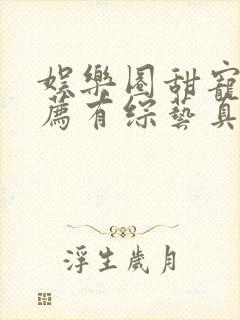 娛樂圈甜寵
薦有綜藝真
浮生歲月